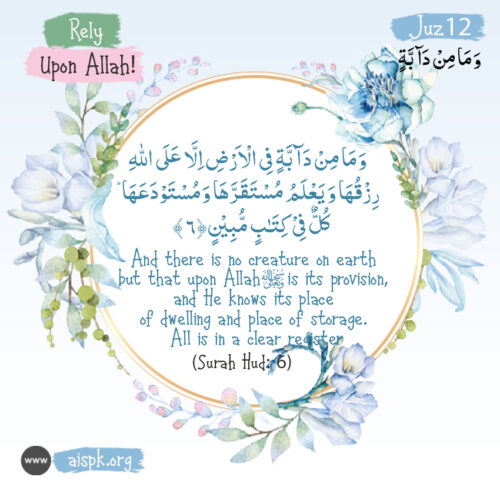 Rely
Upon Allah!
Juz 12
وَمَا مِنْ دَآبَّةٍ
وَمَا مِنْ دَآبَّةٍ فِی الْاَرْضِ اِلَّا عَلَی اللّٰهِ
رِزْقُهَا وَیَعْلَمُ مُسْتَقَرَّهَا وَمُسْتَوْدَعَهَا ؕ
كُلٌّ فِیْ كِتٰبٍ مُّبِیْنٍ ﴿۶﴾
And there is no creature on earth
but that upon Allah ﷻ is its provision,
and He knows its place
of dwelling and place of storage.
All is in a clear register
(Surah Hud: 6)
www aispk.org